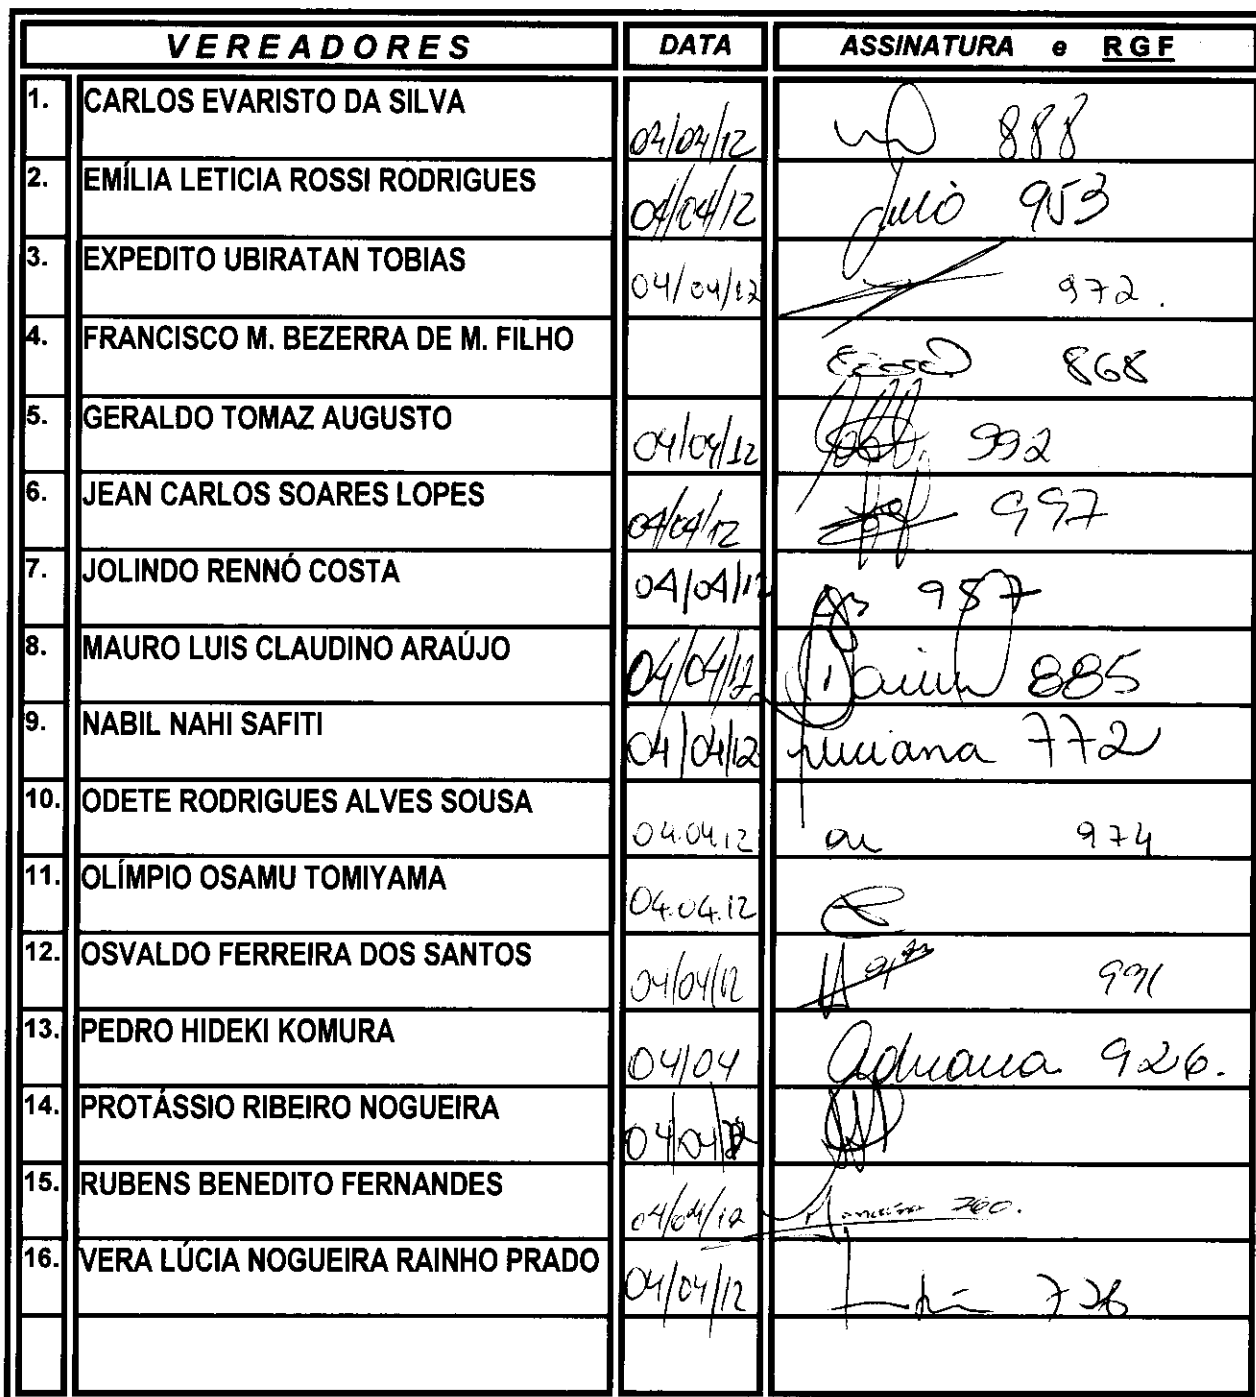 VEREADORES DATA ASSINATURA e RGF
1. CARLOS EVARISTO DA SILVA 04/04/12 888
2. EMÍLIA LETICIA ROSSI RODRIGUES 04/04/12 953
3. EXPEDITO UBIRATAN TOBIAS 04/04/12 972.
4. FRANCISCO M. BEZERRA DE M. FILHO 868
5. GERALDO TOMAZ AUGUSTO 04/04/12 992
6. JEAN CARLOS SOARES LOPES 04/04/12 997
7. JOLINDO RENNÓ COSTA 04/04/12 987
8. MAURO LUIS CLAUDINO ARAÚJO 04/04/12 885
9. NABIL NAHI SAFITI 04/04/12 Luciana 772
10. ODETE RODRIGUES ALVES SOUSA 04.04.12 974
11. OLÍMPIO OSAMU TOMIYAMA 04.04.12
12. OSVALDO FERREIRA DOS SANTOS 04/04/12 991
13. PEDRO HIDEKI KOMURA 04/04 Adriana 926.
14. PROTÁSSIO RIBEIRO NOGUEIRA 04/04/12
15. RUBENS BENEDITO FERNANDES 04/04/12 760.
16. VERA LÚCIA NOGUEIRA RAINHO PRADO 04/04/12